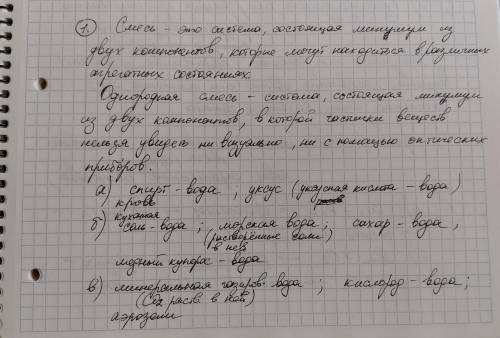 1. Смесь - это система, состоящая минимум из
двух компонентов, которые могут находиться в различных
агрегатных состояниях.
Однородная смесь - система, состоящая минимум
из двух компонентов, в которой частички веществ
нельзя увидеть ни визуально, ни с помощью оптических
приборов.
а) спирт - вода ; уксус (уксусная кислота - вода)
кровь
б) кухонная соль - вода ; морская вода ; сахар - вода,
(растворённые соли)
в ней
медный купорос - вода
в) минеральная газиров. вода ; кислород - вода ;
(CO2 раств. в ней)
аэрозоли